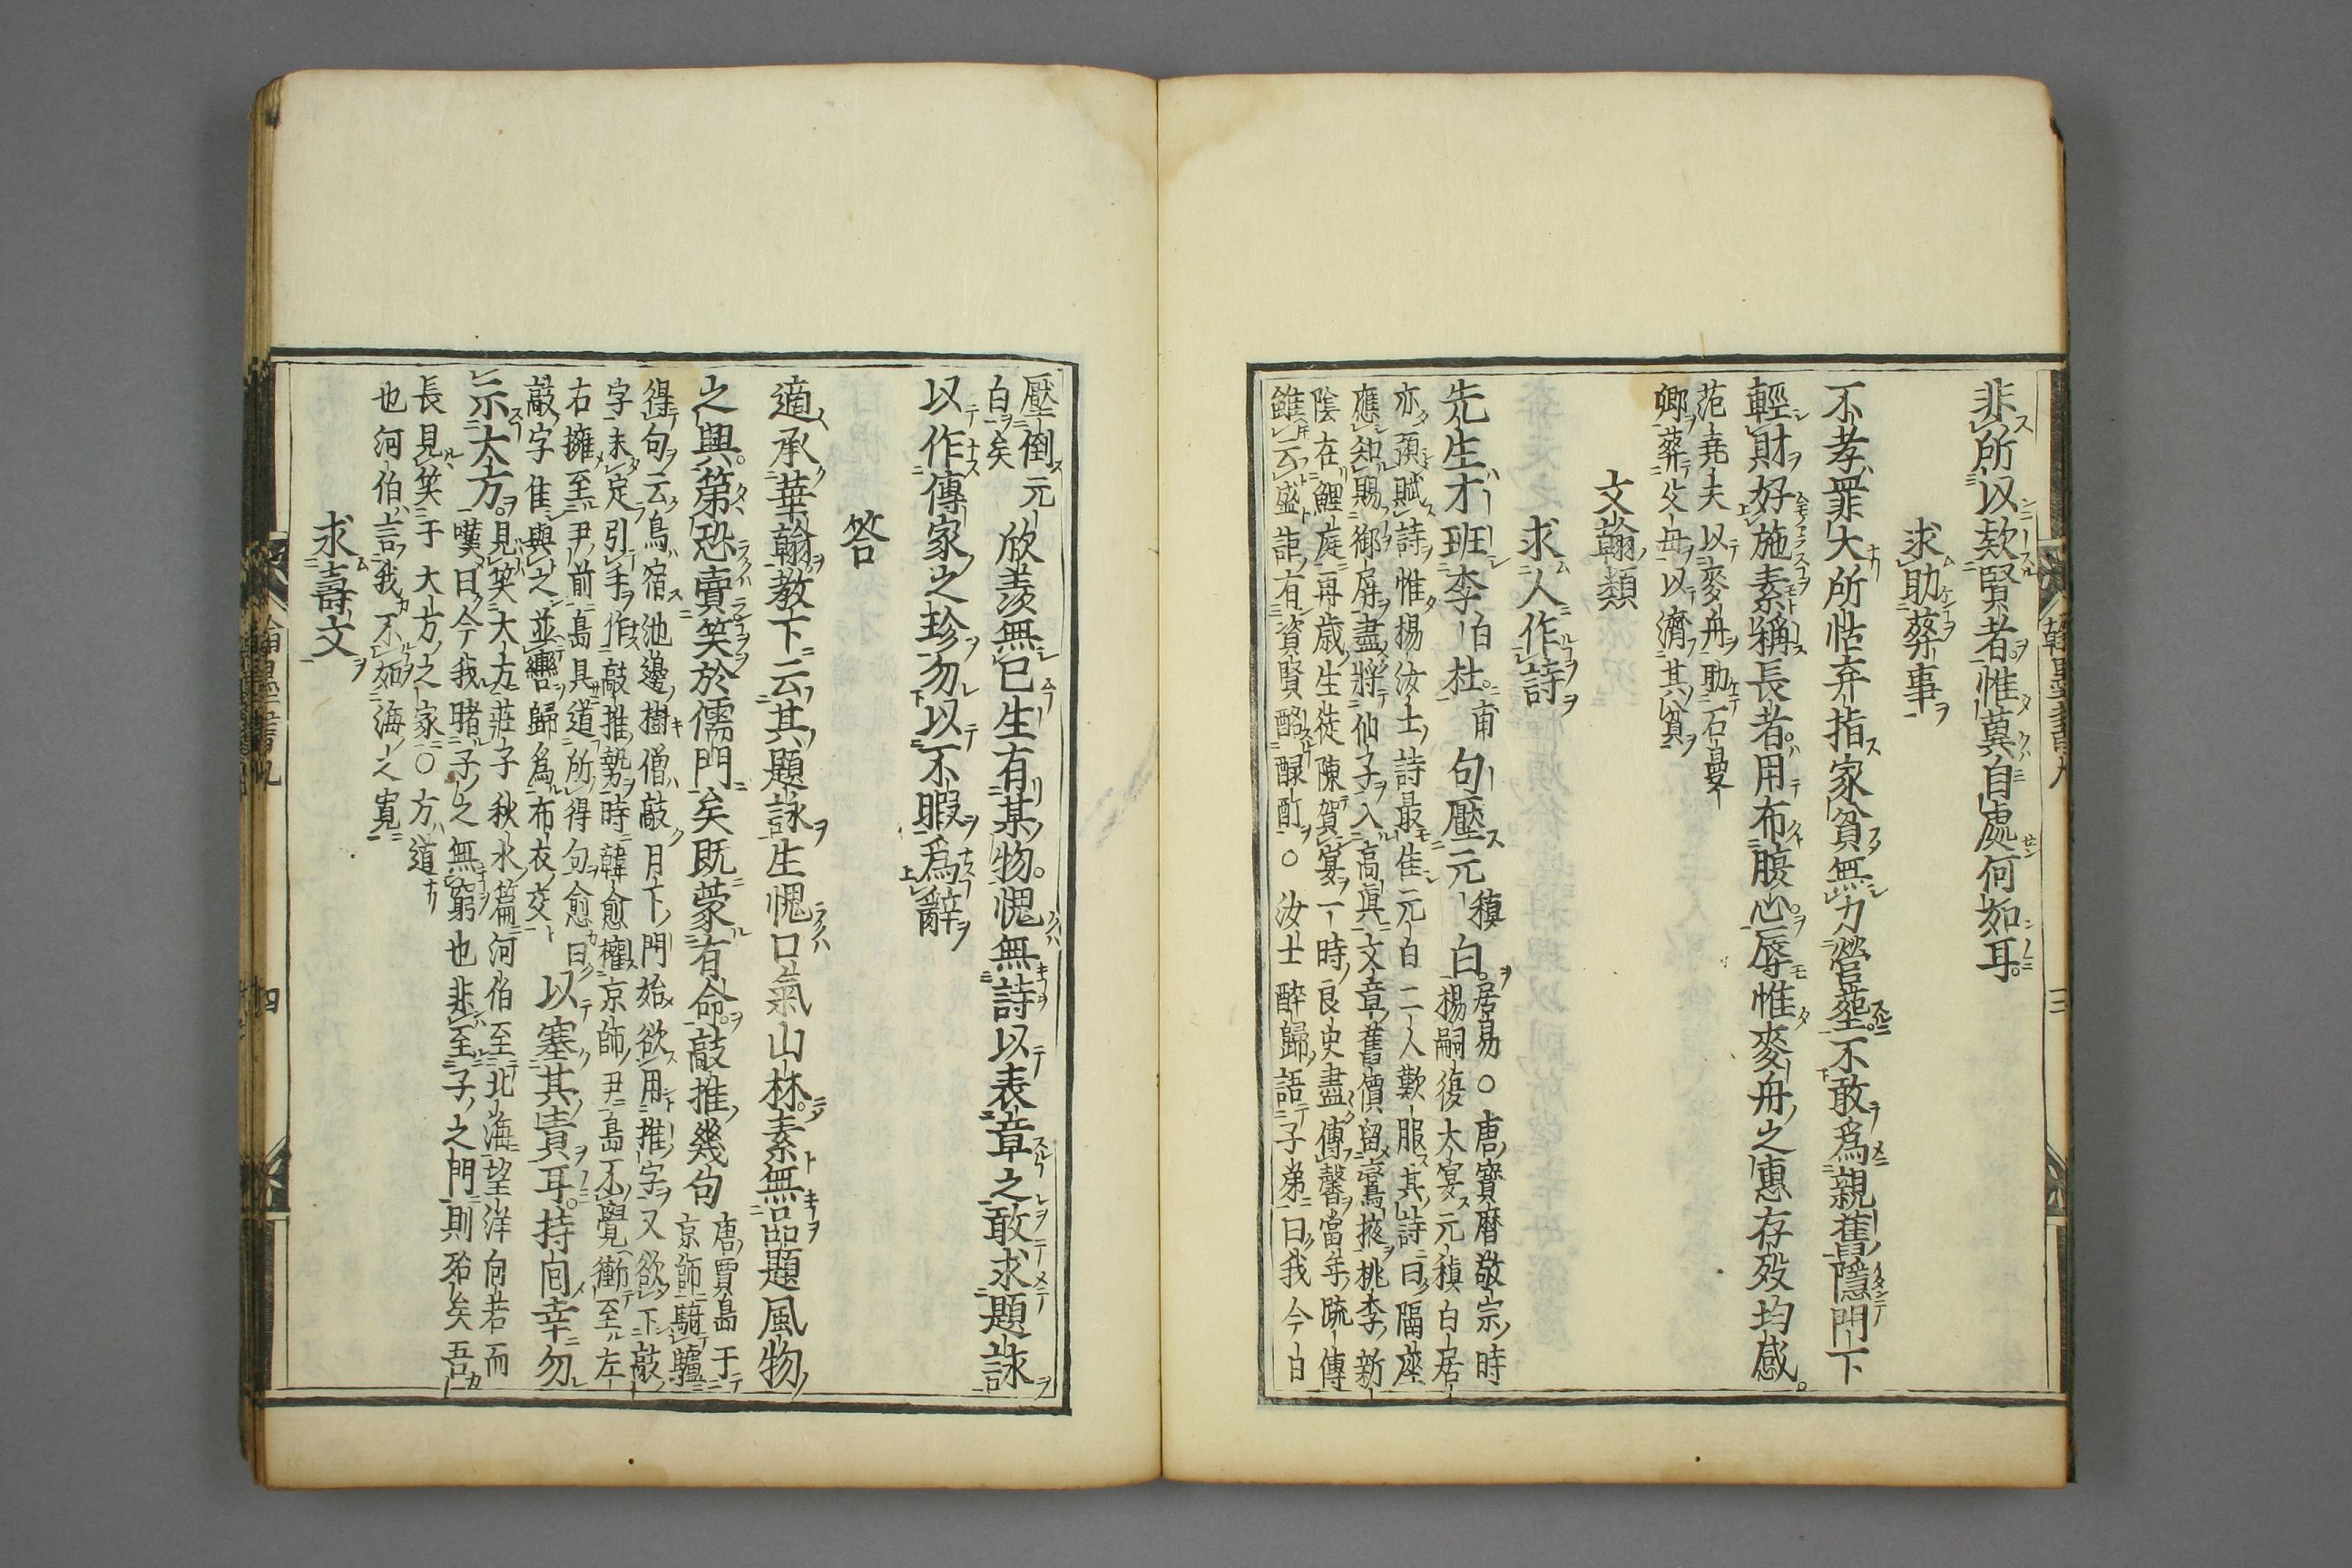 非所以欵賢者惟冀自處何如耳
求助葬事
不孝罪大所怙弃指家貧無力營塟不敢爲親舊隱門下
輕財好施素稱長者用布腹心辱惟麥舟之惠存歿均感
范堯夫以麥舟助石曼
卿葬父母以濟其貧
文翰類
求人作詩
先生才班李白杜甫句壓元稹白居易○唐寳曆敬宗時
楊嗣復大宴元稹白居
亦預賦詩惟楊汝士詩最佳元白二人歎服其詩曰隔座
應知賜御屏盡將仙子入高眞文章舊價留鸞掖桃李新
陰在鯉庭再歳生徒陳賀宴一時良史盡傳馨當年疏傳
雖云盛詎有資賢酩醁酊○汝士醉歸語子弟曰我今日
壓倒元
白矣
欣羨無已生有某物愧無詩以表章之敢求題詠
以作傳家之珍勿以不暇爲辭
答
適承華翰教下云其題詠生愧口氣山林素無品題風物
之興第恐賣笑於儒門矣既蒙有命敲推幾句
唐賈島于
京師騎驢
得句云鳥宿池邊樹僧敲月下門始欲用推字又欲下敲
字未定引手作敲推勢時韓愈權京師尹島不覺衝至左
右擁至尹前島具道所得句愈曰
敲字佳與之並轡歸爲布衣交
以塞其責耳持間幸勿
示大方
見笑大方莊子秋水篇河伯至北海望洋向若而
嘆曰今我睹子之無窮也非至子之門則殆矣吾
長見笑于大方之家○方道
也河伯言我不如海之寬
求壽文
翰墨書九
三
四